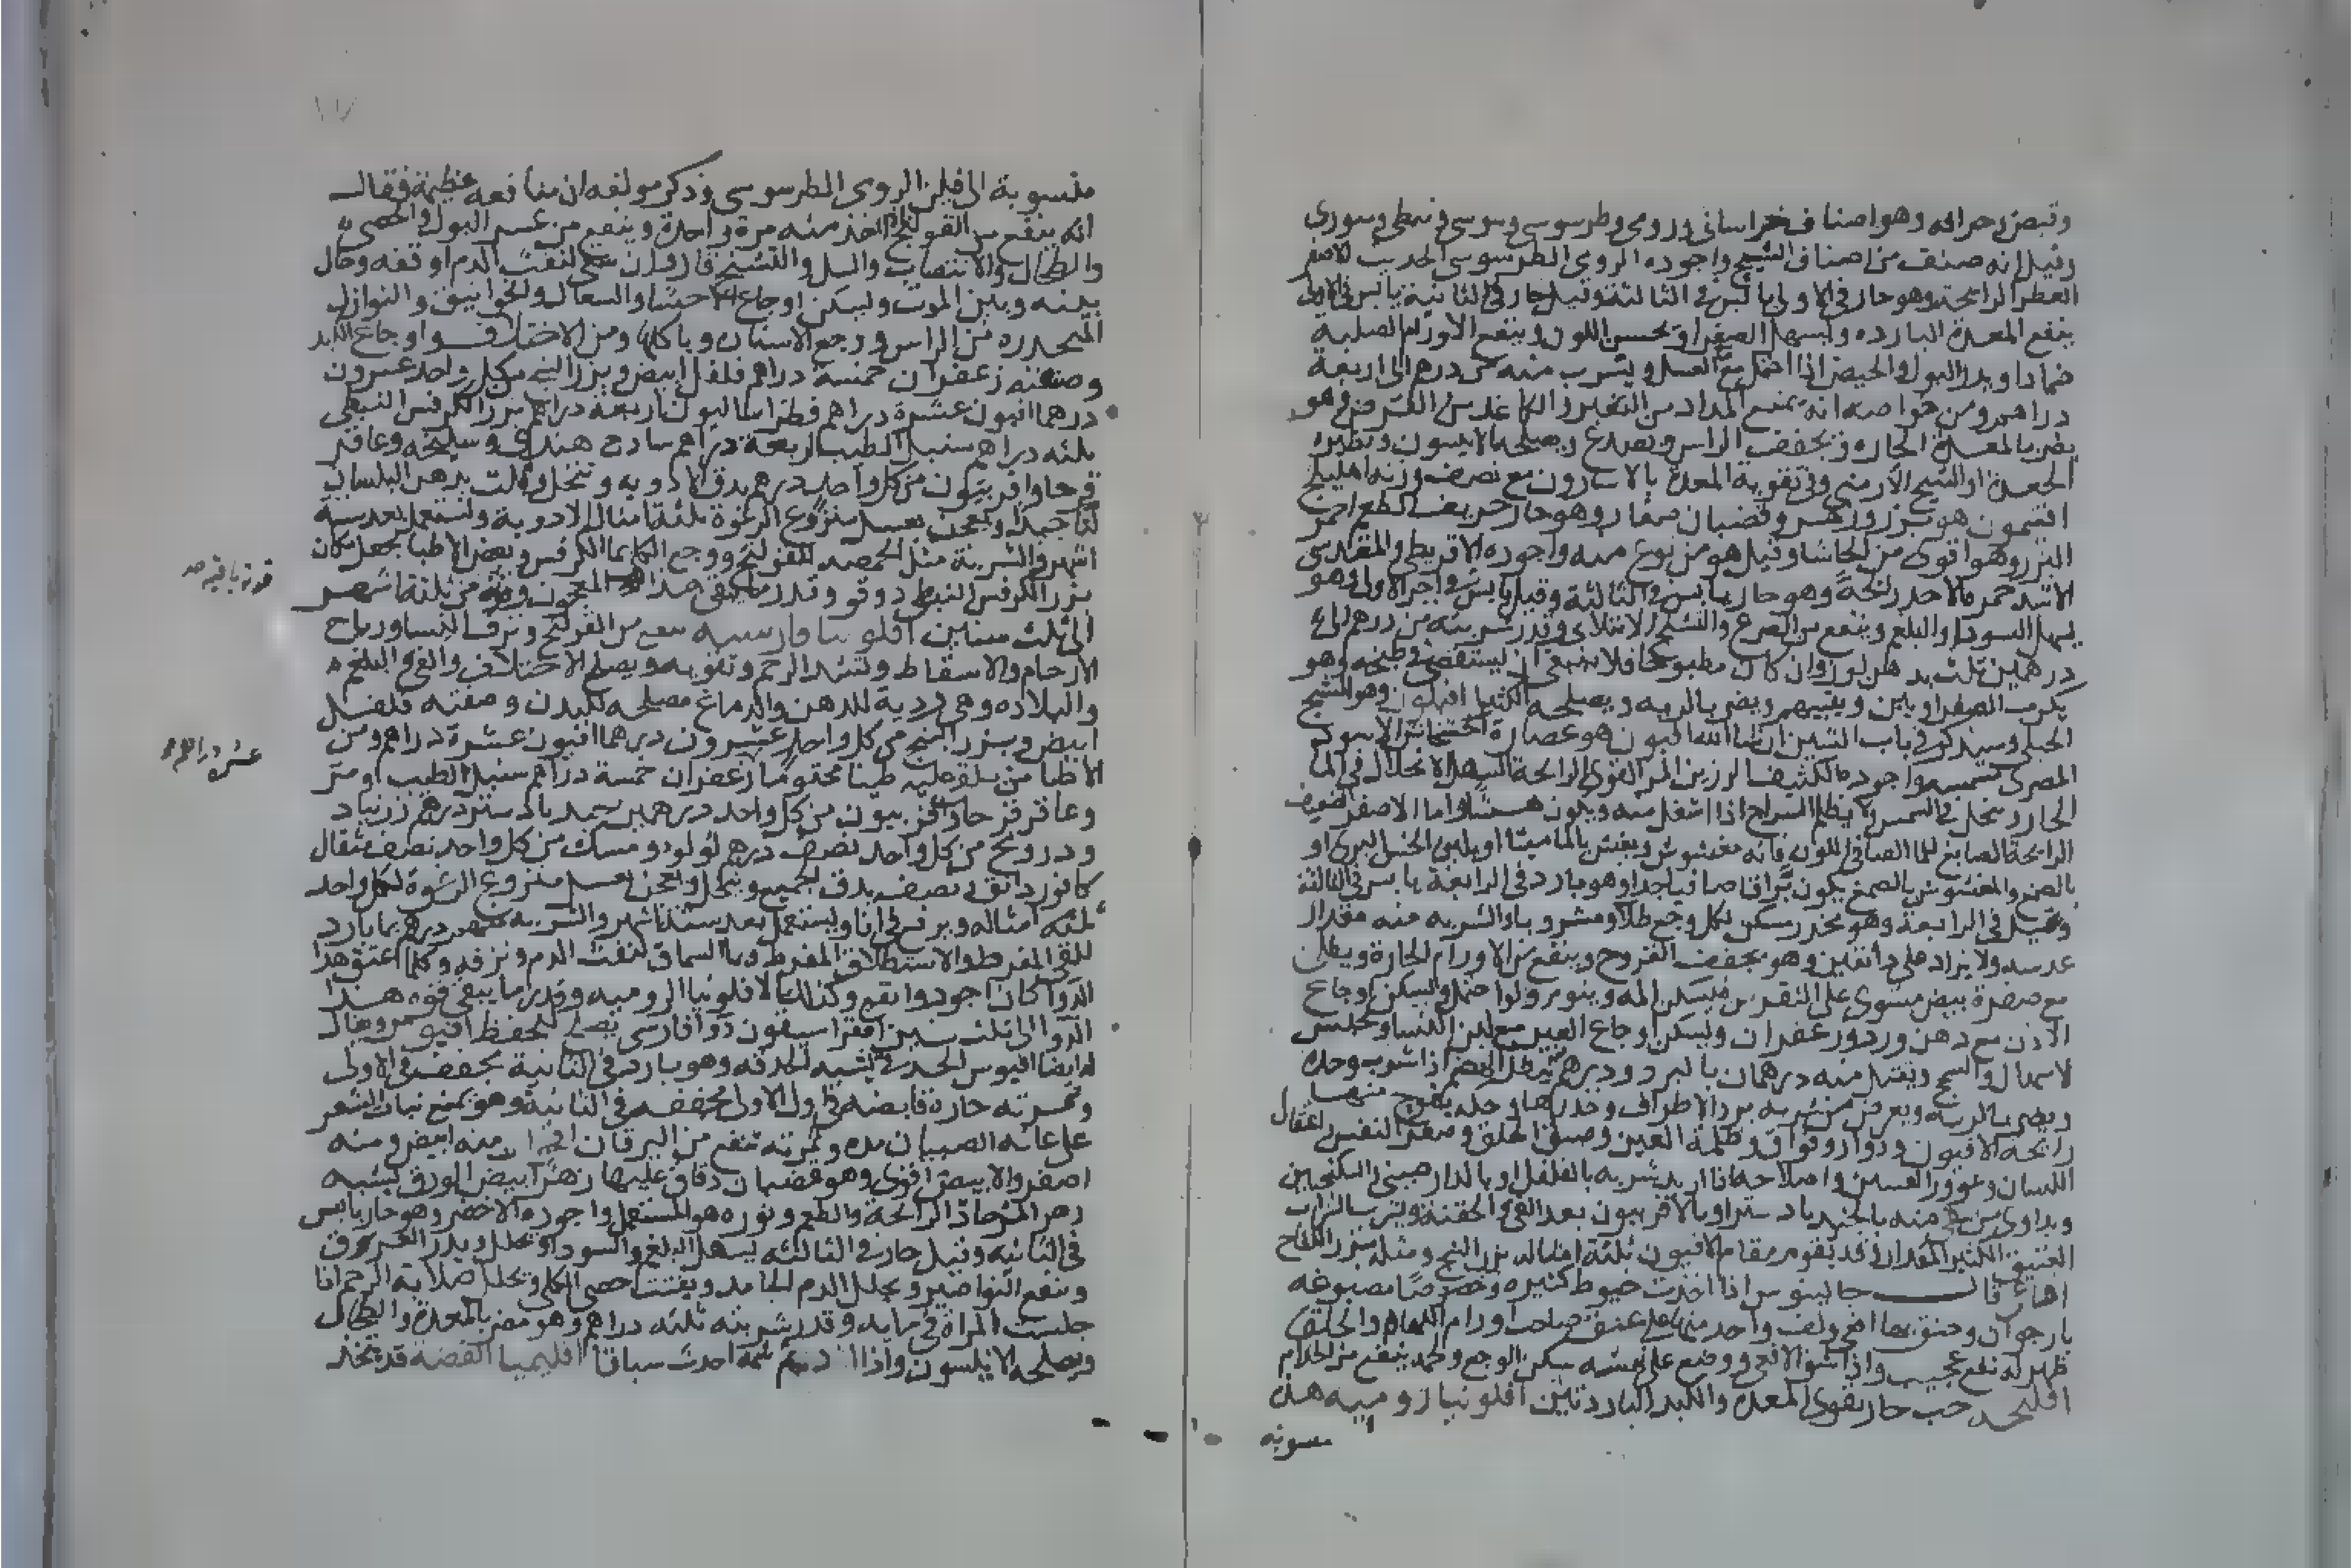 وقبض وحرافه وهو اصناف خراساني ورومي وطرسوسي وسوسي ونبطي وسوري
وقيل انه صنف من اصناف الشيح واجوده الرومي الطرسوسي الحديث الاصفر
العطر الرائحة وهو حار في الاولى يابس في الثالثة وقيل حار في الثانية يابس في الاولى
ينفع المعدة البارده ويسهل الصفرا ويحسن اللون وينفع الاورام الصلبة
ضمادا ويدر البول والحيض اذا احتمل مع العسل ويشرب منه من درهم الى اربعة
دراهم ومن خواصه انه يمنع المداد من التغير والكاغد من القرض وهو
يضر بالمعدة الحاره ويجفف الراس ويصدع ويصلحه الانيسون ونظيره
الجعدة او الشيح الارمني وفي تقوية المعدة بالاسارون مع نصف وزنه اهليلج
افتيمون هو بزر وزهر وقضبان صغار وهو حار حريف الطعم احمر
البزر وهو اقوى من الحاشا وقيل هو من نوع منه واجوده الاقريطي والمقدسي
الاشد حمره الاحد رائحة وهو حار يابس في الثالثة وقيل يابس في اخر الاولى وهو
يسهل السودا والبلغم وينفع من الصرع والتشنج الامتلائي وقدر شربته من درهم الى
درهمين تلت بدهن لوز وان كان مطبوخا فلا ينبغي ان يستقصى في طبخه وهو
يكرب الصفراويين ويقيئهم ويضر بالريه ويصلحه الكثيرا افيلون وهو الشيح
الجبلي وسيذكر في باب الشين ان شا الله افيون هو عصارة الخشخاش الاسود
المصري تشمس واجوده الكثيف الرزين المر القوي الرائحة السهل الانحلال في الما
الحار ينحل في الشمس ولا يظلم السراج اذا اشعل منه ويكون هشا واما الاصفر الضعيف
الرائحة الصابغ للما الصافي اللون فانه مغشوش ويغش بالماميثا او بلبن الخس البري او
بالصمغ والمغشوش بالصمغ يكون براقا صافيا جدا وهو بارد في الرابعة يابس في الثالثة
وقيل في الرابعة وهو مخدر مسكن لكل وجع طلا ومشروبا والشربه منه مقدار
عدسه ولا يزاد على دانقين وهو يجفف القروح وينفع من الاورام الحارة ويطلى
مع صفرة بيض مشوي على النقرس فيسكن المه وينوم ولو احتمل ويسكن اوجاع
الاذن مع دهن ورد وزعفران ويسكن اوجاع العين مع لبن النسا ويحبس
الاسهال والسحج ويقتل منه درهمان بالبرد ودرهم يبطل الهضم اذا شرب وحده
ويضر بالريه ويعرض من شربه برد الاطراف وخدرها وحكه يفوح منها
رائحه الافيون ودوار وفواق وظلمة العين وضيق الحلق وصغر النفس واعتقال
اللسان وغوور العينين واصلاحه اذا اريد شربه بالفلفل او بالدارصيني والسكنجبين
ويداوى من سقي منه بالجندبادستر او بالافربيون بعد القي والحقنة وشرب الشراب
العتيق الكثير المقدار وقد يقوم مقام الافيون ثلثة امثاله بزر البنج ومثله بزر اللفاح
افاعي قال جالينوس اذا اخذت خيوط كثيره وخصوصا مصبوغه
بارجوان وخنق بها افعى ولف واحد منها على عنق صاحب اورام اللهاه والحلق
ظهر له نفع عجيب واذا شق الافعى ووضع على نهشه سكن الوجع ولحمه ينفع من الجذام
افليجه حب حار يقوي المعده والكبد الباردتين افلونيا روميه هذه
منسوبه
منسوبة الى فيلن الرومي الطرسوسي وذكر مولفه ان منافعه عظيمة فقال
انه ينفع من القولنج اذا اخذ منه مرة واحدة وينفع من عسر البول والحصى
والطحال والانتصاب والسل والتشنج قال وان سقي لنفث الدم اوقفه وحال
بينه وبين الموت ويسكن اوجاع الاحشا والسعال والخوانيق والنوازل
المنحدره من الراس ووجع الاسنان وتاكلها ومن الاختلاف واوجاع الكبد
وصنعته زعفران خمسة دراهم فلفل ابيض وبزر البنج من كل واحد عشرون
درهما افيون عشرة دراهم فطراساليون اربعة دراهم بزر الكرفس النبطي
ثلثه دراهم سنبل الطيب اربعة دراهم سادج هندي وسليخه وعاقر
قرحا وافربيون من كل واحد درهم يدق الادويه وتنخل وتلت بدهن البلسان
لتا جيدا ويعجن بعسل منزوع الرغوة ثلثة امثال الادوية وتستعمل بعد ستة
اشهر والشربة مثل الحمصه للقولنج ووجع الكلى بما الكرفس وبعض الاطبا يجعل مكان
بزر الكرفس النبطي دوقو وقدر ما يبقى هذا المعجون وقوته من ثلثة اشهر
الى ثلث سنين افلونيا فارسيه تنفع من القولنج ونزف النسا ورياح
الارحام والاسقاط وتشد الرحم وتقويه ويصلح الاختلاف والقي البلغمي
والبلاده وهي رديه للذهن والدماغ مصلحه للبدن وصفته فلفل
ابيض وبزر البنج من كل واحد عشرون درهما افيون عشرة دراهم ومن
الاطبا من يلقي عليه طينا مختوما زعفران خمسة دراهم سنبل الطيب او مر
وعاقرقرحا وافربيون من كل واحد درهمين جندبادستر درهم زرنباد
ودرونج من كل واحد نصف درهم لولو ومسك من كل واحد نصف مثقال
كافور دانق ونصف يدق الجميع وينخل ويعجن بعسل منزوع الرغوة لكل واحد
ثلثه امثاله ويرفع في انا ويستعمل بعد ستة اشهر والشربه درهم بما بارد
للقي المفرط والاستطلاق المفرط وبما السماق لنفث الدم ونزفه وكلما عتق هذا
الدوا كان اجود وانفع وكذلك الافلونيا الروميه وقدر ما يبقى قوه هذا
الدوا الى ثلث سنين افتراسيقون دوا فارسي يصلح للحفظ افيوس ويقال
له ايضا افيوس الحدقي يشبه الحدقه وهو بارد في الثانية يجفف في الاولى
وثمرته حارة قابضه في اول الاولى مجففه في الثانية وهو يمنع نبات الشعر
على عانه الصبيان مده وثمرته تنفع من اليرقان منه ابيض ومنه
اصفر والابيض اقوى وهو قضبان دقاق عليها زهر ابيض الورق يشبه
زهر المر حاد الرائحة والطعم ونوره هو المستعمل واجوده الاخضر وهو حار يابس
في الثانيه وقيل حار في الثالثه يسهل البلغم والسودا ويحلل ويدر العرق
وينفع النواصير ويحلل الدم الجامد ويفتت حصى الكلى ويحلل صلابة الرحم اذا
جلست المراة في مايه وقدر شربته ثلثه دراهم وهو مضر بالمعدة والطحال
ويصلحه الانيسون واذا شمه احدث سباتا اقليميا الفضه قد يتخذ
عشره دراهم